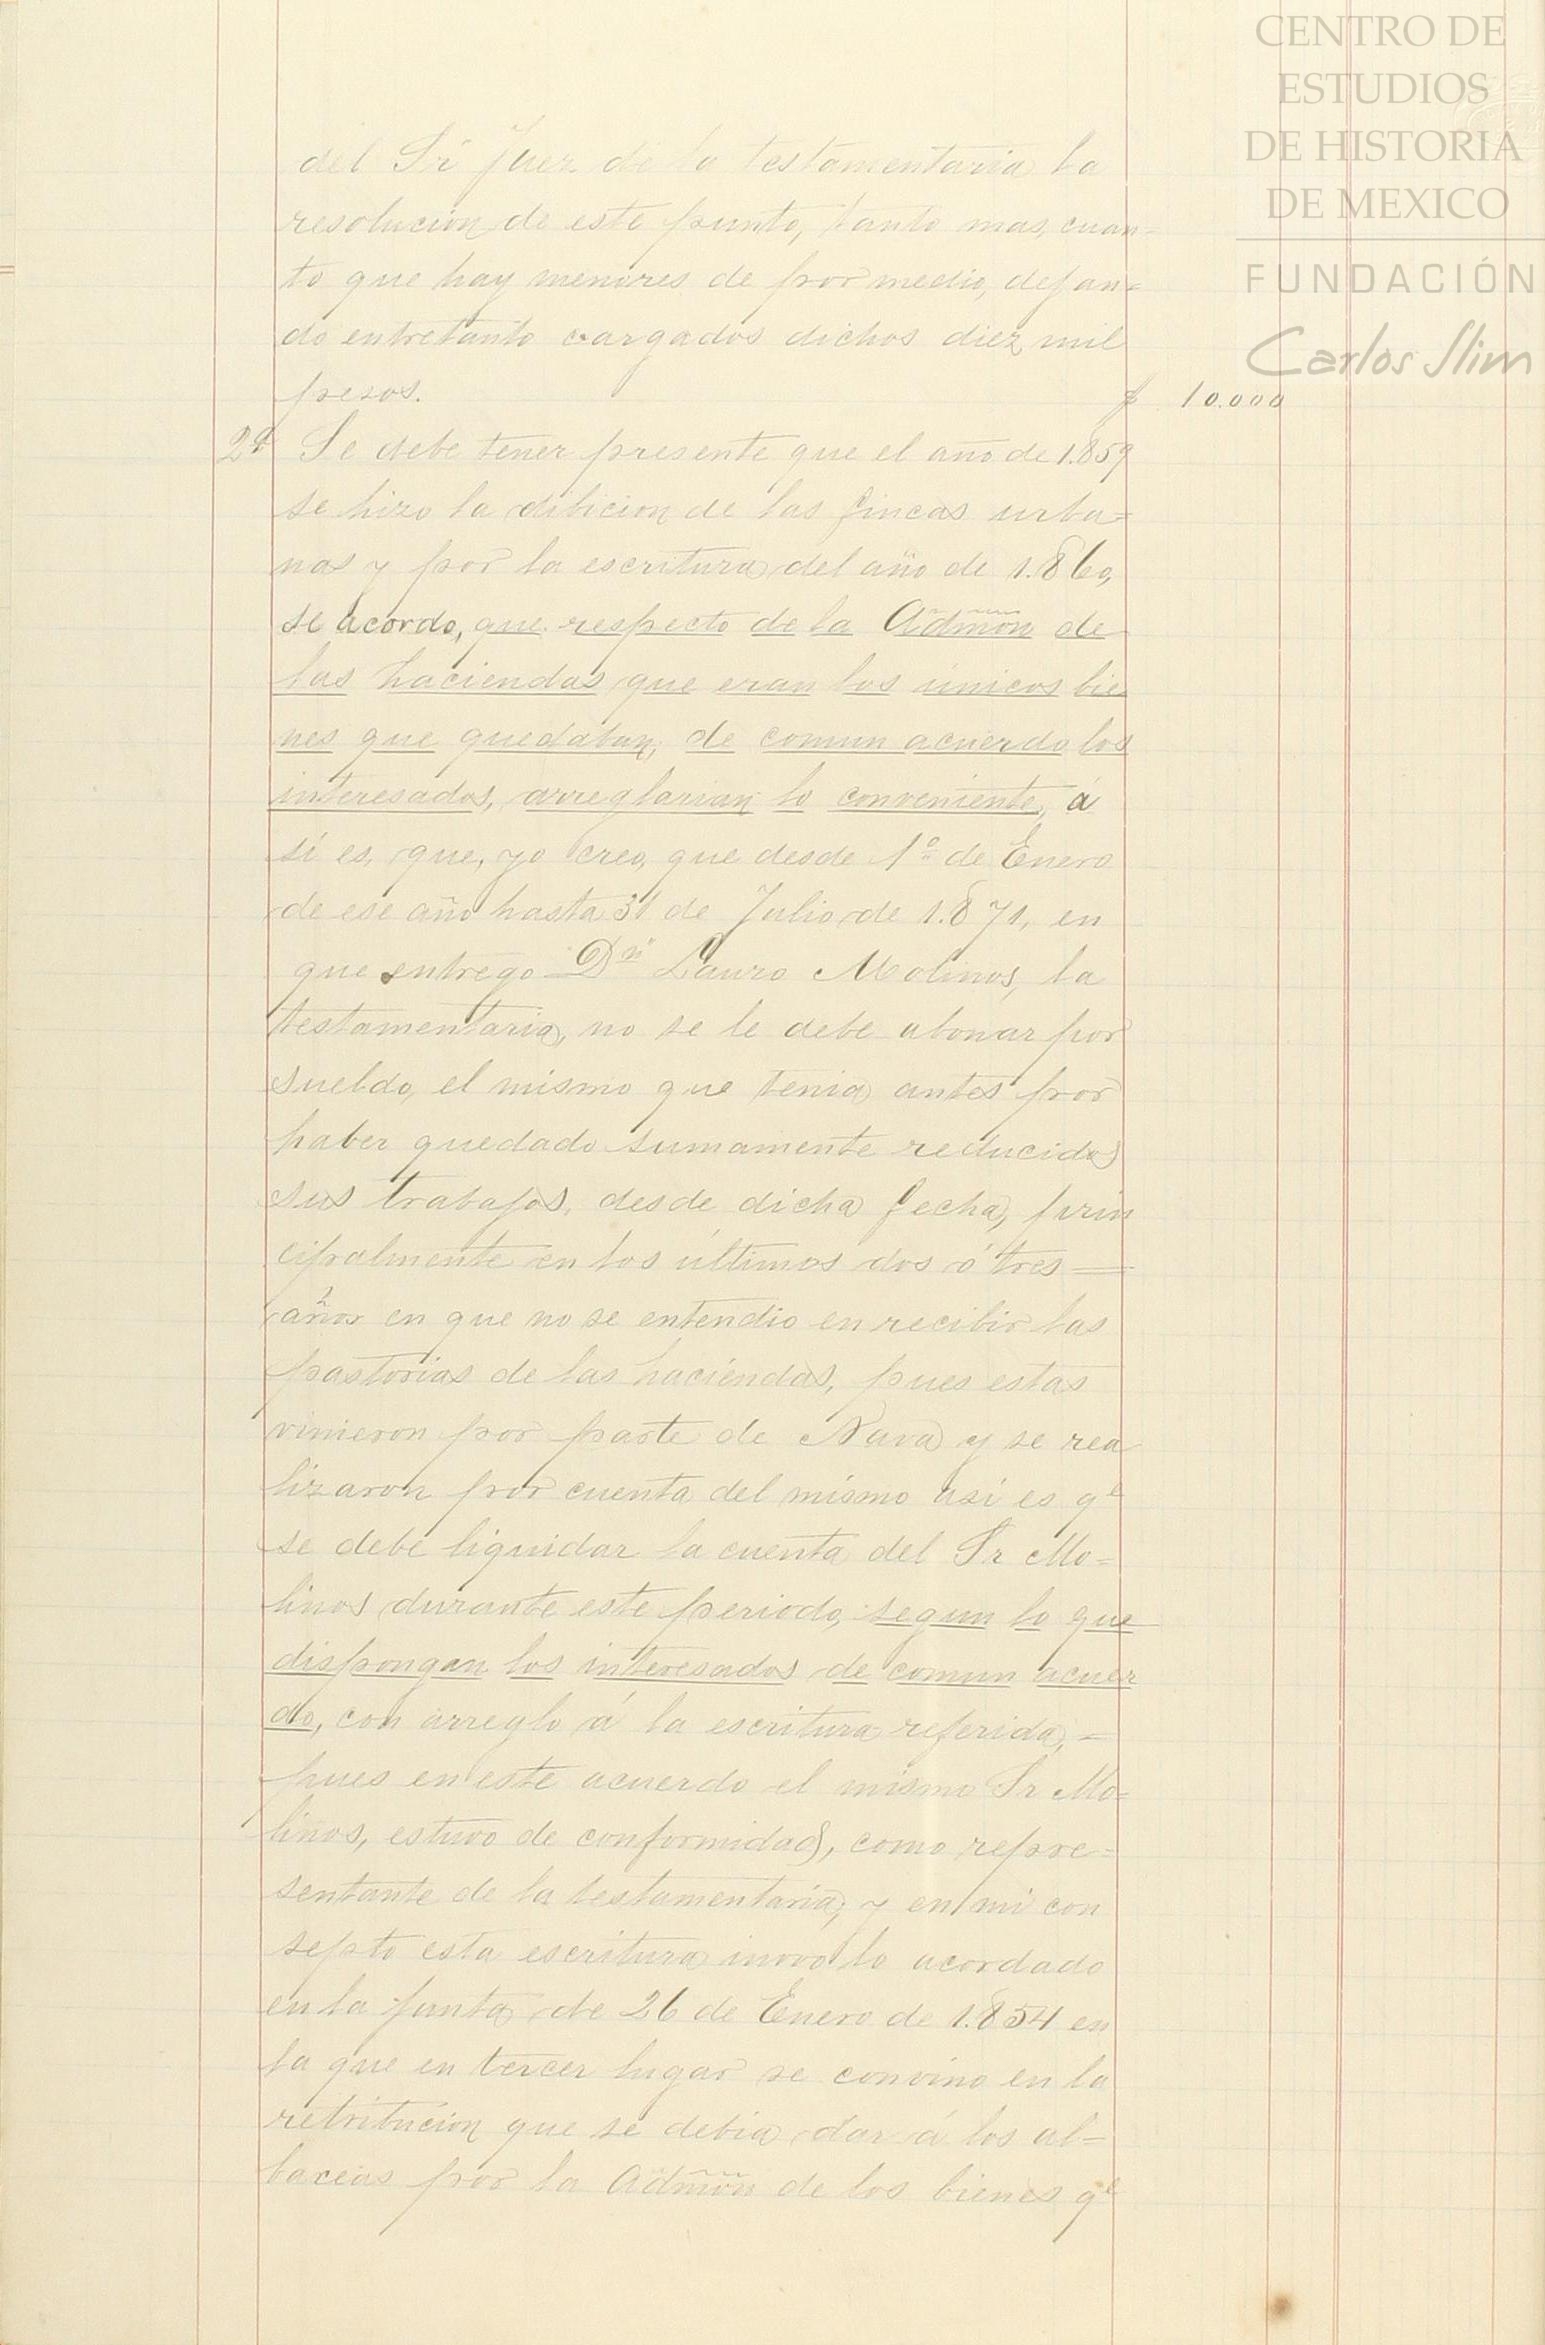 CENTRO DE
ESTUDIOS
DE HISTORIA
DE MEXICO
FUNDACIÓN
Carlos Slim
del Sr Juez de la testamentaria la
resolucion de este punto, tanto mas, cuan-
to que hay menores de por medio, dejan-
do entretanto cargados dichos diez mil
pesos. $ 10.000
2ª Se debe tener presente que el año de 1.859
se hizo la dibicion de las fincas urba=
nas y por la escritura del año de 1.860,
se acordo, que respecto de la Admōn de
las haciendas que eran los únicos bie
nes que quedaban, de comun acuerdo los
interesados, arreglarian lo conveniente, á
si es, que, yo creo, que desde 1º de Enero
de ese año hasta 31 de Julio de 1.871, en
que entrego Dn Lauro Molinos, la
testamentaria, no se le debe abonar por
sueldo, el mismo que tenia antes por
haber quedado sumamente reducidos
sus trabajos, desde dicha fecha, prin
cipalmente en los últimos dos ó tres =
años en que no se entendio en recibir las
pastorias de las haciendas, pues estas
vinieron por parte de Nava y se rea
lizaron por cuenta del mismo asi es qe
se debe liquidar la cuenta del Sr Mo=
linos durante este periodo, segun lo que
dispongan los interesados de comun acuer
do, con arreglo á la escritura referida, =
pues en este acuerdo el mismo Sr Mo=
linos, estuvo de conformidad, como repre=
sentante de la testamentaria; y en mi con
septo esta escritura inovo lo acordado
en la junta de 26 de Enero de 1.854 en
la que en tercer lugar se convino en la
retribucion que se debia dar á los al=
baceas por la Admōn de los bienes qe